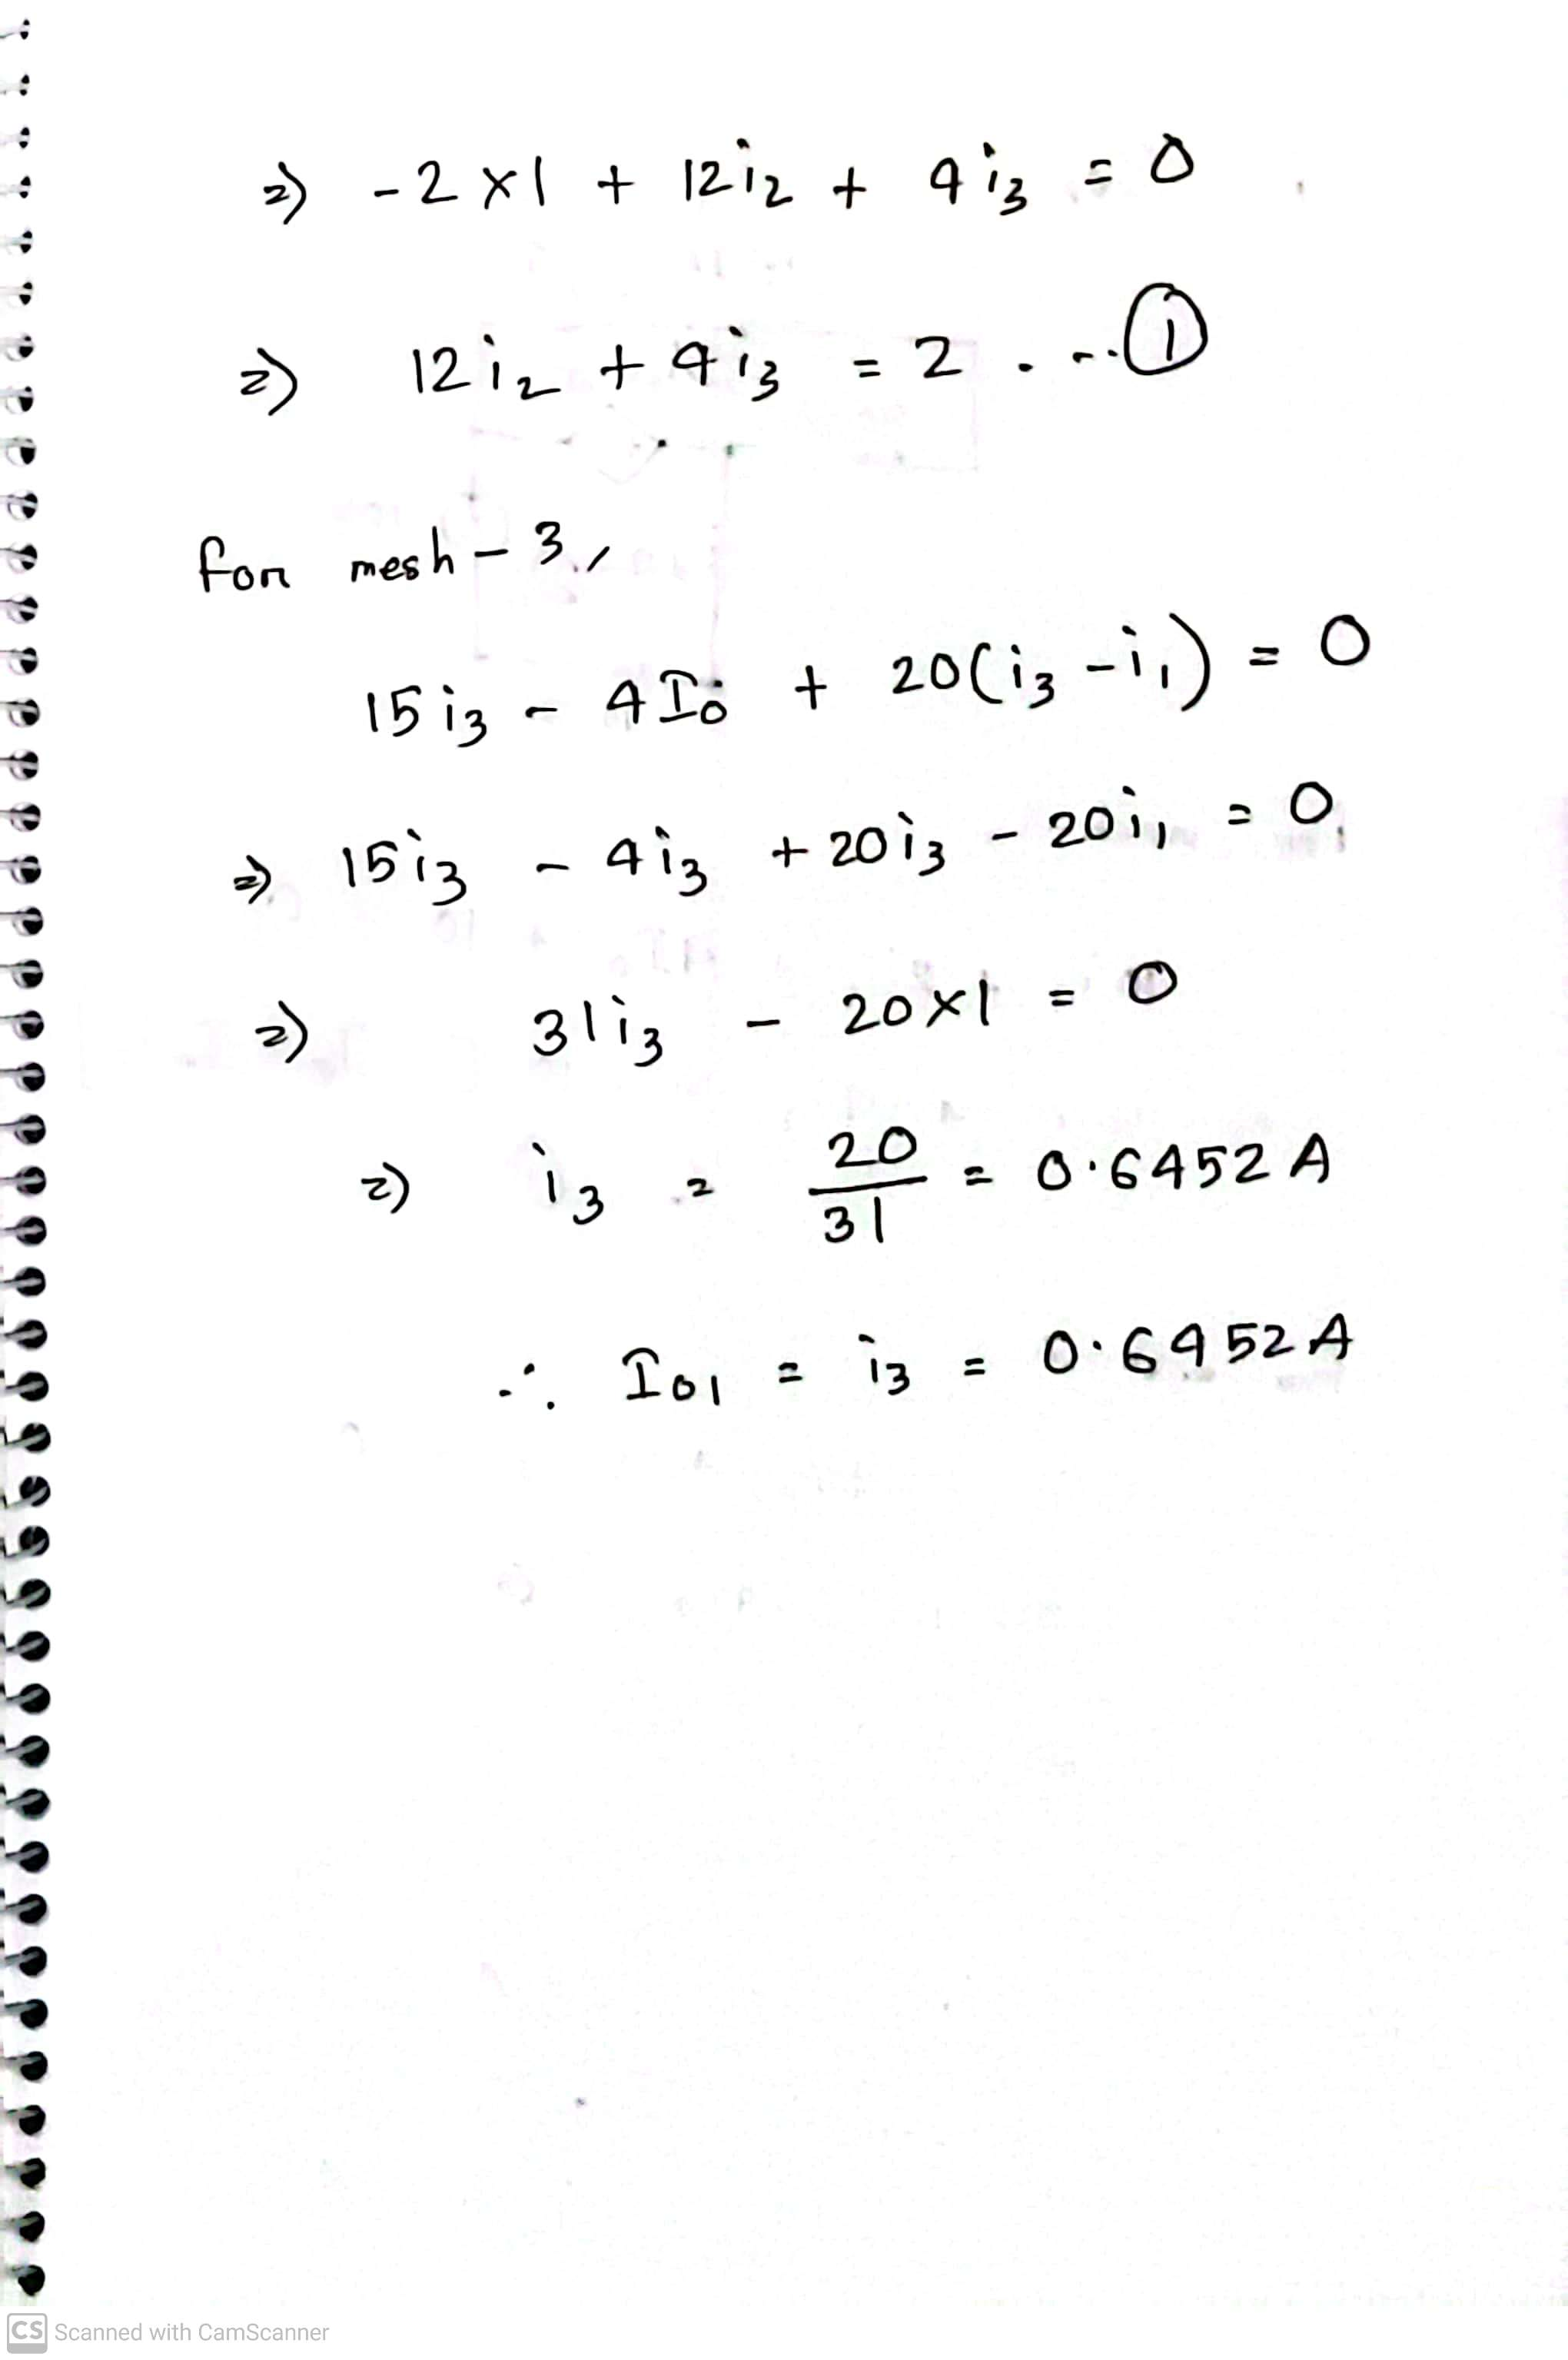 ⇒ -2×1 + 12i₂ + 4i₃ = 0
⇒ 12i₂ + 4i₃ = 2 ... ①
for mesh-3,
15i₃ - 4I₀ + 20(i₃ - i₁) = 0
⇒ 15i₃ - 4i₃ + 20i₃ - 20i₁ = 0
⇒ 31i₃ - 20×1 = 0
⇒ i₃ = 20/31 = 0.6452 A
∴ I₀₁ = i₃ = 0.6452 A
CS Scanned with CamScanner